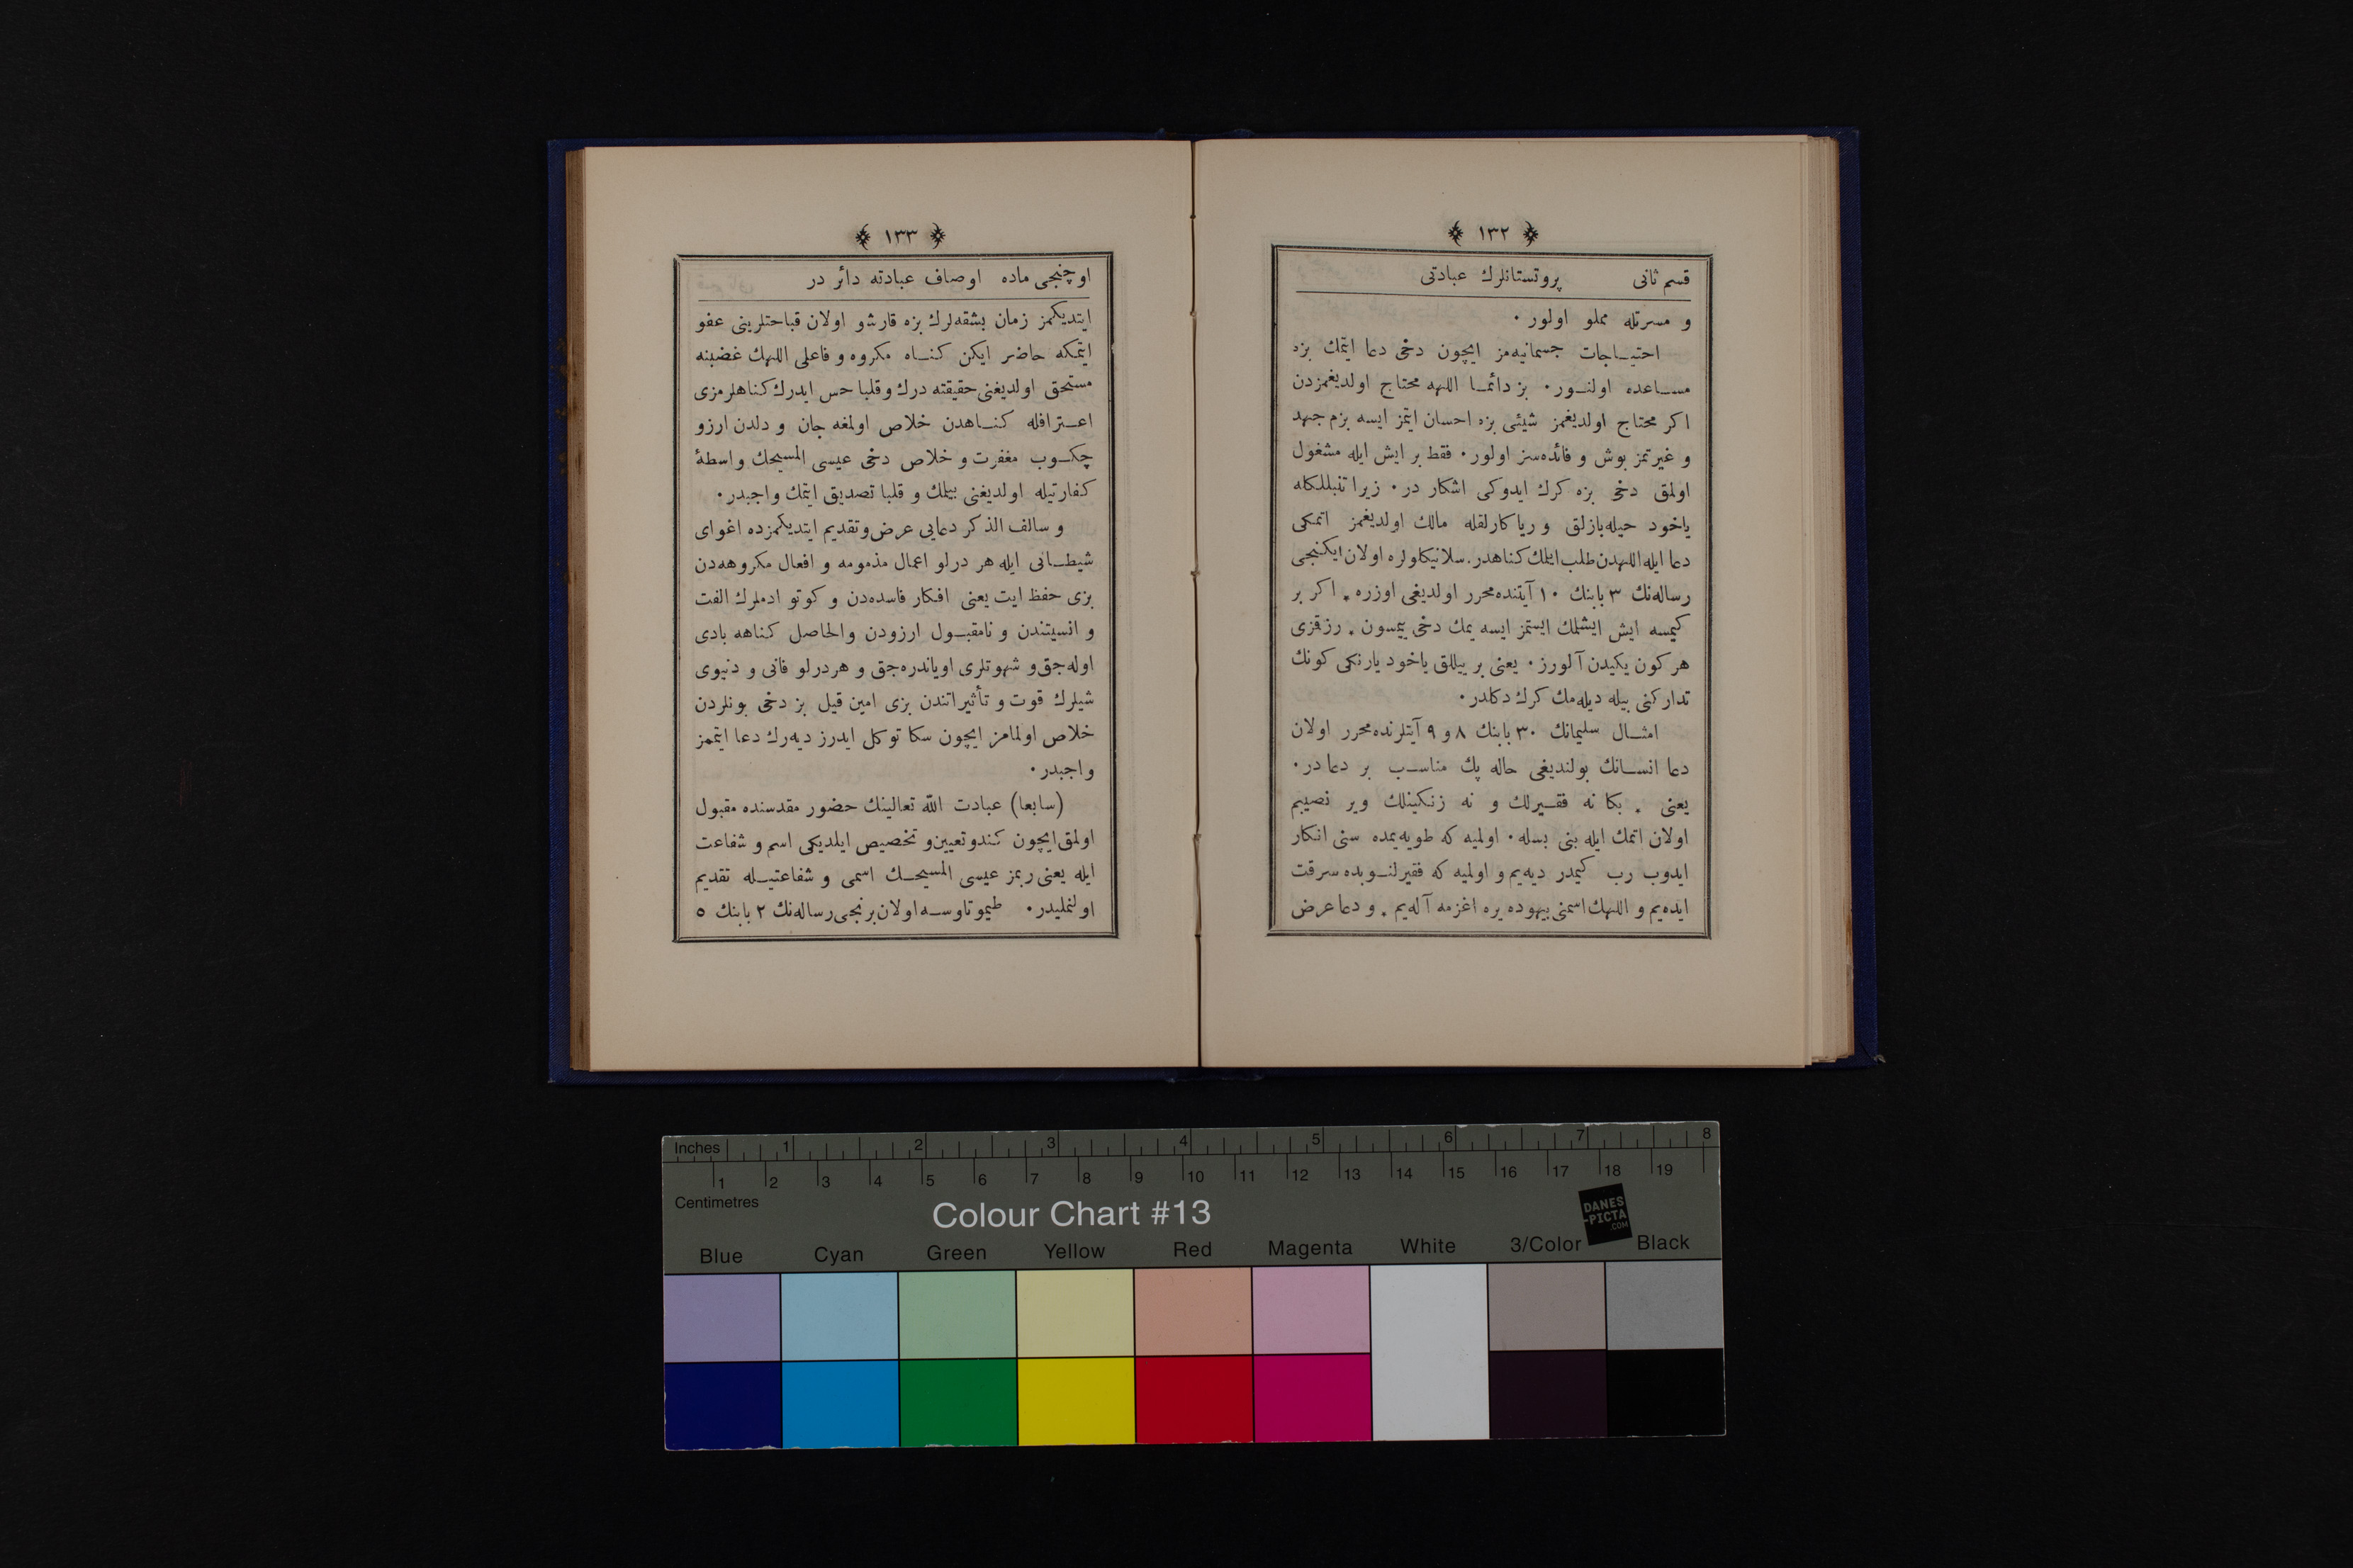 ﴿ ١٣٢ ﴾
قسم ثانی پروتستانلرك عبادتی
و مسرتله مملو اولور ٠
احتیـاجات جسمانیه‌مز ایچون دخی دعا ایتمك بزه
مسـاعده اولنـور ٠ بز دائمـا اللهه محتاج اولدیغمزدن
اكر محتاج اولدیغمز شیئی بزه احسان ایتمز ایسه بزم جهد
و غیرتمز بوش و فائده‌سز اولور ٠ فقط بر ایش ایله مشغول
اولمق دخی بزه كرك ایدوكی اشكار در ٠ زیرا تنبللكله
یاخود حیله‌بازلق و ریا كارلقله مالك اولدیغمز اتمكی
دعا ایله اللهدن طلب ایلمك كناهدر ٠ سلانیكلولره اولان ایكنجی
رساله‌نك ٣ بابنك ١٠ آیتنده محرر اولدیغی اوزره ٭ اكر بر
كیمسه ایش ایشلمك ایستمز ایسه یمك دخی ییمسون ٭ رزقزی
هر كون یكیدن آلورز ٠ یعنی بر ییللق یاخود یارنكی كونك
تداركنی بیله دیله‌مك كرك دكلدر ٠
امثـال سلیمانك ٣٠ بابنك ٨ و ٩ آیتلرنده محرر اولان
دعا انسـانك بولندیغی حاله پك مناسـب بر دعا در ٠
یعنی ٭ بكا نه فقـیرلك و نه زنكینلك ویر نصیبم
اولان اتمك ایله بنی بسله ٠ اولمیه كه طویه‌یمده سنی انكار
ایدوب رب كیمدر دیه‌یم و اولمیه كه فقیرلنـوبده سرقت
ایده‌یم و اللهك اسمنی بیهوده یره اغزمه آله‌یم ٭ و دعا عرض
﴿ ١٣٣ ﴾
اوچنجی ماده اوصاف عبادته دائر در
ایتدیكمز زمان بشقه‌لرك بزه قارشو اولان قباحتلرینی عفو
ایتمكه حاضر ایكن كنـاه مكروه و فاعلی اللهك غضبنه
مستحق اولدیغنی حقیقته درك و قلبا حس ایدرك كناهلرمزی
اعـترافله كنـاهدن خلاص اولمغه جان و دلدن ارزو
چكـوب مغفرت و خلاص دخی عیسی المسیحك واسطهٔ
كفارتیله اولدیغنی بیلمك و قلبا تصدیق ایتمك واجبدر ٠
و سالف الذكر دعایی عرض و تقدیم ایتدیكمزده اغوای
شیطـانی ایله هر درلو اعمال مذمومه و افعال مكروهه‌دن
بزی حفظ ایت یعنی افكار فاسده‌دن و كوتو ادملرك الفت
و انسیتندن و نامقبـول ارزودن والحاصل كناهه بادی
اوله‌جق و شهوتلری اویاندره‌جق و هر درلو فانی و دنیوی
شیلرك قوت و تأثیراتندن بزی امین قیل بز دخی بونلردن
خلاص اولمامز ایچون سكا توكل ایدرز دیه‌رك دعا ایتممز
واجبدر ٠
(سابعا) عبادت اللّه تعالینك حضور مقدسنده مقبول
اولمق ایچون كندو تعیین و تخصیص ایلدیكی اسم و شفاعت
ایله یعنی ربمز عیسی المسیحـك اسمی و شفاعتیـله تقدیم
اولنملیدر ٠ طیموتاوسـه اولان برنجی رساله‌نك ٢ بابنك ٥
Inches 1 2 3 4 5 6 7 8
1 2 3 4 5 6 7 8 9 10 11 12 13 14 15 16 17 18 19
Centimetres
Colour Chart #13
DANES
-PICTA
.COM
Blue Cyan Green Yellow Red Magenta White 3/Color Black